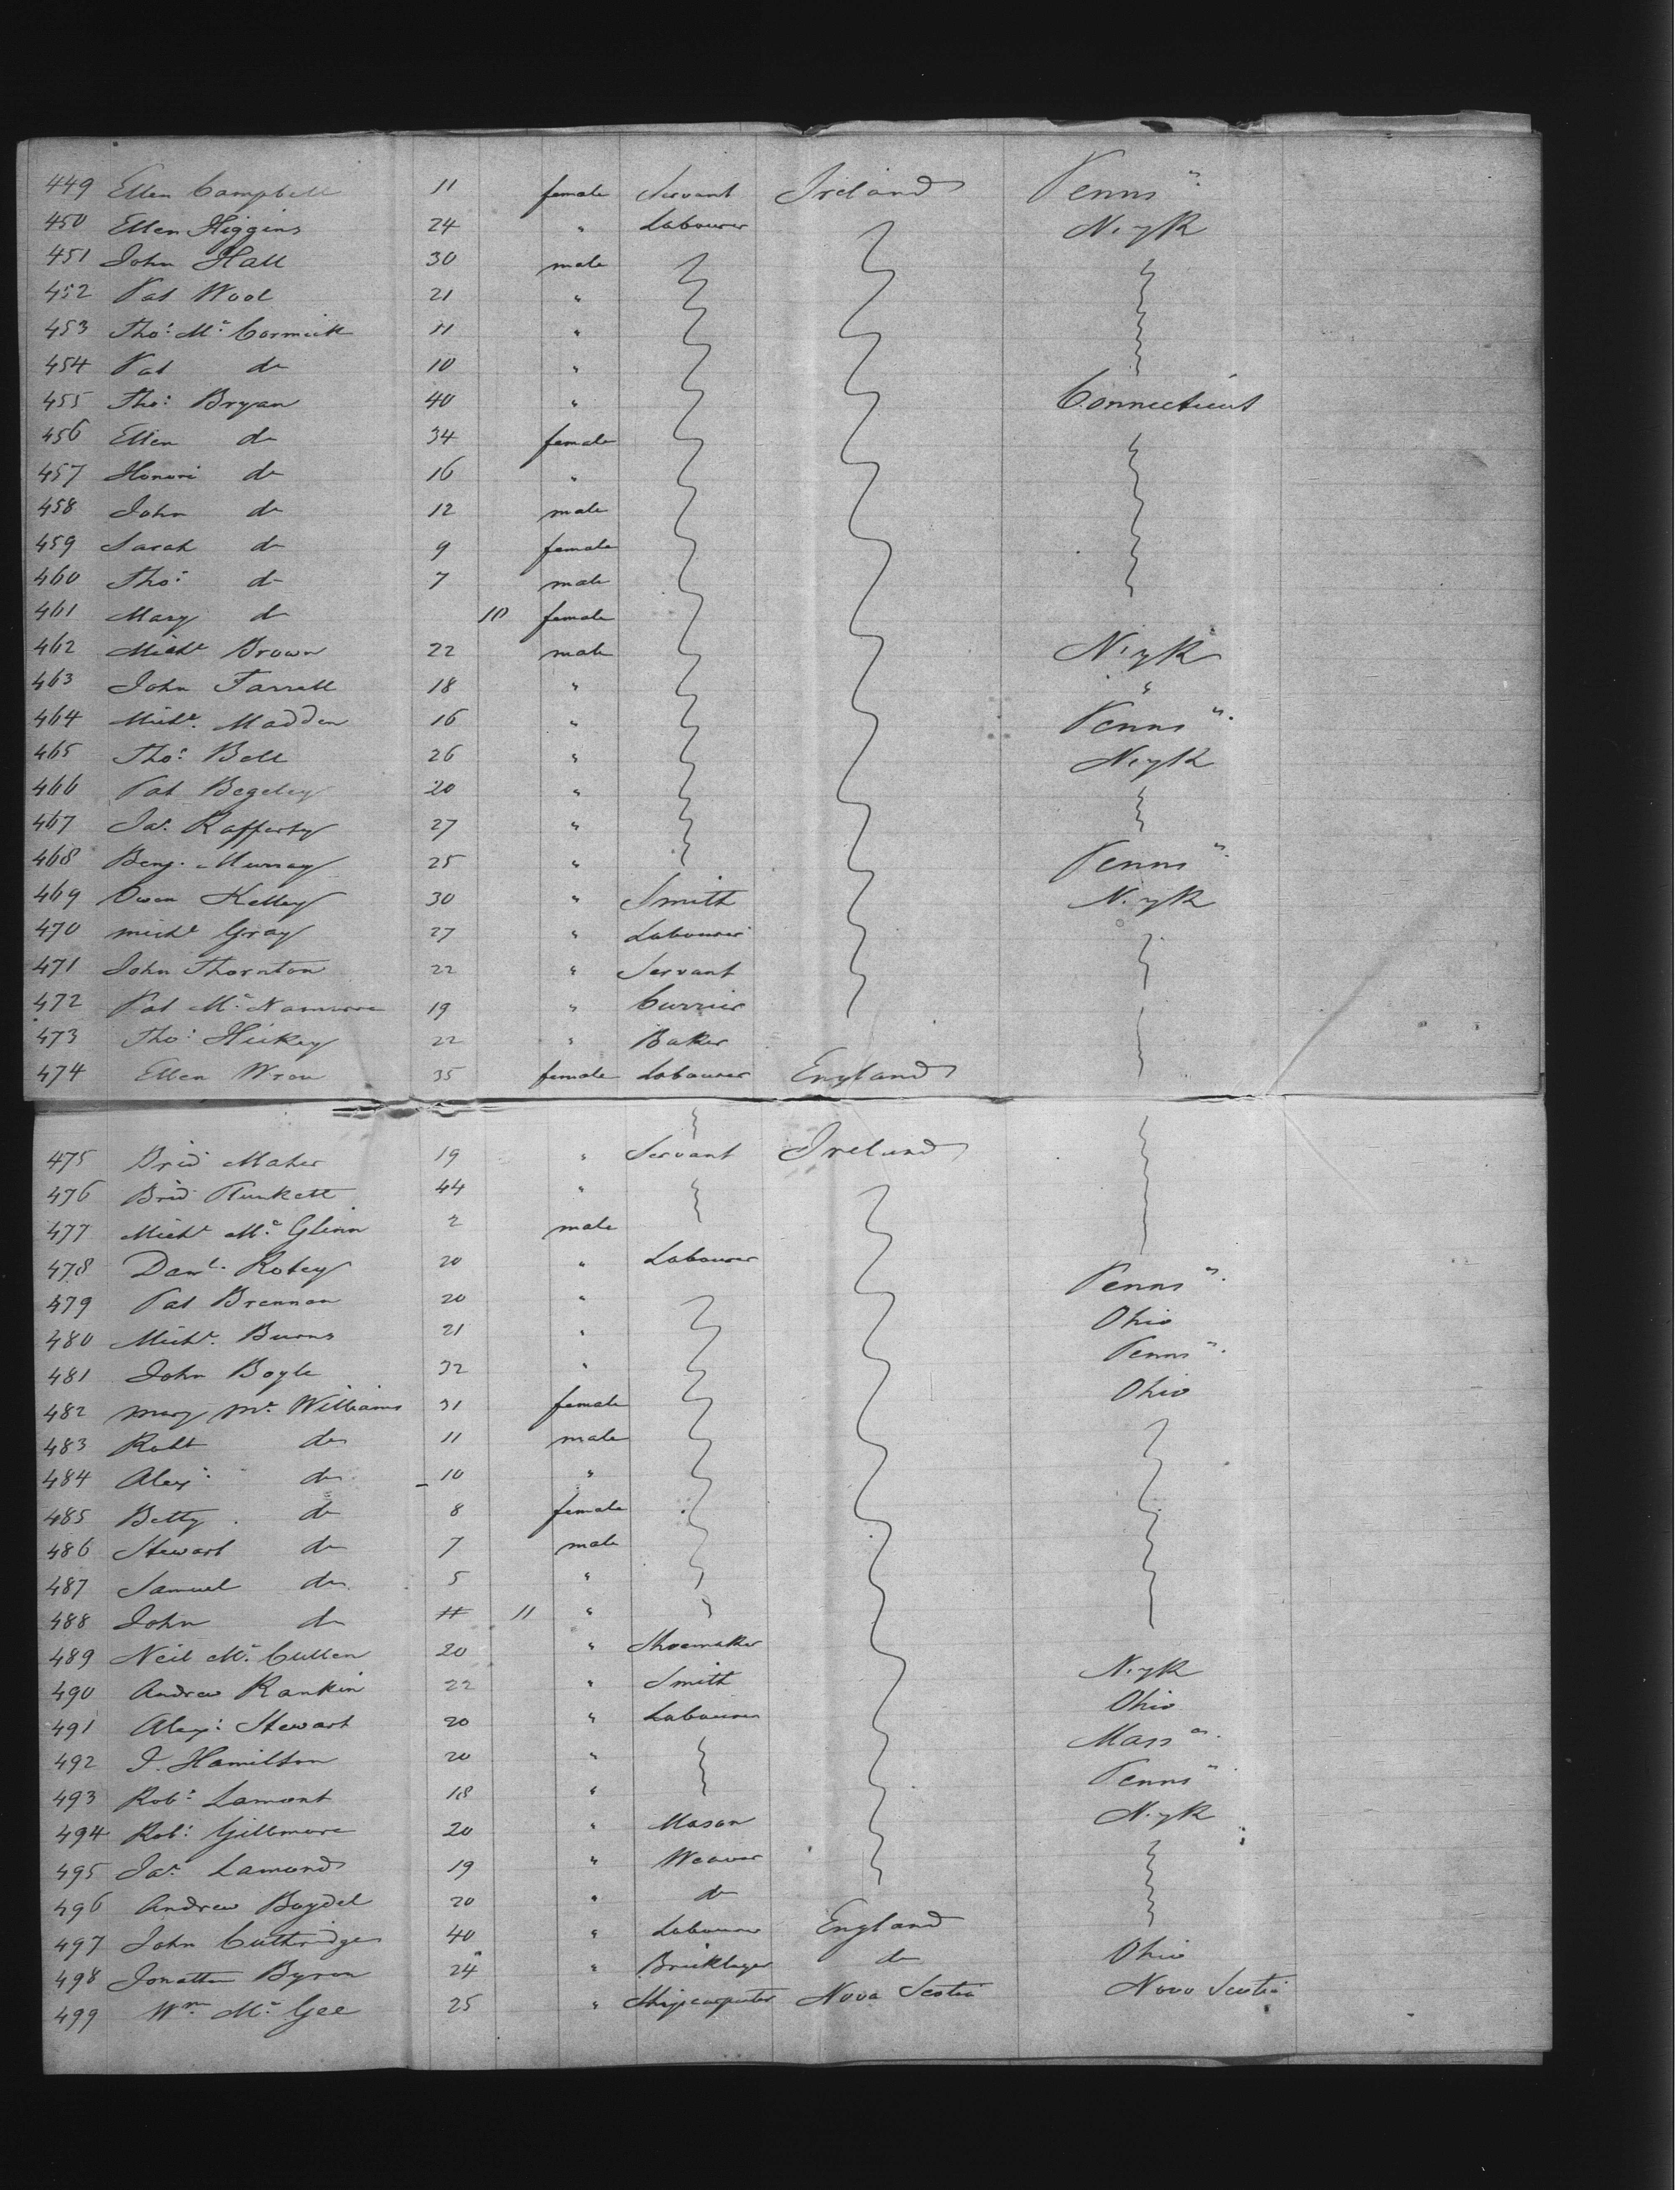 449 Ellen Campbell 11 female Servant Ireland Penns a.
450 Ellen Higgins 24 " Labourer N. yk
451 John Hall 30 male
452 Pat Wool 21 "
453 Tho: Mc Cormick 11 "
454 Pat do 10 "
455 Tho: Bryan 40 " Connecticut
456 Ellen do 34 female
457 Honori do 16 "
458 John do 12 male
459 Sarah do 9 female
460 Tho: do 7 male
461 Mary do 10 female
462 Michl Brown 22 male N. yk
463 John Farrell 18 " "
464 Michl. Madden 16 " Penns a.
465 Tho: Bell 26 " N. yk
466 Pat Begeley 20 "
467 Jas. Rafferty 27 "
468 Benj. Murray 25 " Penns a.
469 Owen Kelley 30 " Smith N. yk
470 michl Gray 27 " Labourer
471 John Thornton 22 " Servant
472 Pat Mc Namara 19 " Currier
473 Tho: Hickey 22 " Baker
474 Ellen 35 female Labourer England
475 Brid Maher 19 " Servant Ireland
476 Brid Plunkett 44 "
477 Michl Mc Glinn 2 male
478 Danl. Robey 20 " Labourer Penns a.
479 Pat Brennan 20 " Ohio
480 Michl. Burns 21 " Penns a.
481 John Boyle 32 " Ohio
482 mary Mc Williams 31 female
483 Robt do 11 male
484 Alex: do 10 "
485 Betty do 8 female
486 Stewart do 7 male
487 Samuel do 5 "
488 John do 11 "
489 Neil Mc Cullen 20 " Shoemaker N. yk
490 Andrew Rankin 22 " Smith Ohio
491 Alex: Stewart 20 " Labourer Mass as.
492 J. Hamilton 20 " Penns a.
493 Rob: Lamont 18 " N. yk
494 Rob: Gillmore 20 " Mason
495 Jas. Lamond 19 " Weaver
496 Andrew Boydel 20 " do
497 John Cuthridge 40 " Labourer England
498 Jonathan Byron 24 " Bricklayer do Ohio
499 Wm. Mc Gee 25 " Shipcarpenter Nova Scotia Nova Scotia